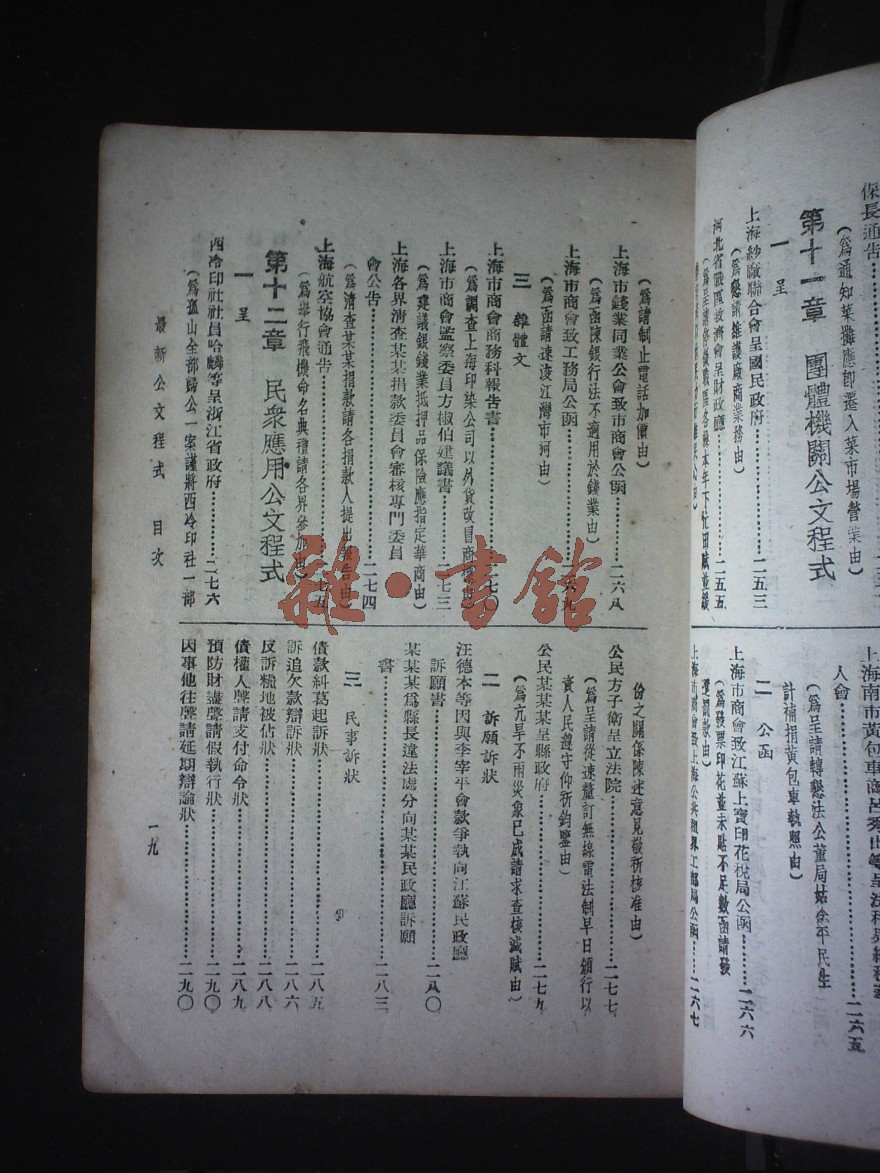 保長通告
(爲通知菜攤應卽遷入菜市場營業由)
第十一章 團體機關公文程式
一 呈
上海紗廠聯合會呈國民政府……二五三
(爲懇請維護廠商業務由)
河北省戰區救濟會呈財政廳……二五五
人會……二六五
(爲呈請轉懇法公董局姑念平民生
計補捐黃包車執照由)
二 公函
上海市商會致江蘇上寶印花稅局公函……二六六
(爲發票印花並未貼不足數函請發
還罰款由)
上海市商會致上海公共租界工部局公函……二六七
(爲請制止電話加價由)
上海市錢業同業公會致市商會公函……二六八
(爲函陳銀行法不適用於錢業由)
上海市商會致工務局公函……二六九
(爲函請速浚江灣市河由)
三 雜體文
上海市商會商務科報告書……二七〇
(爲調查上海印染公司以外貨改冒商標由)
上海市商會監察委員方椒伯建議書……二七三
(爲建議銀錢業抵押品保險應指定華商由)
上海各界清查某某捐款委員會審核專門委員
會公告……二七四
(爲清查某某捐款請各捐款人提出報告由)
上海航空協會通告……二七五
(爲舉行飛機命名典禮請各界參加由)
第十二章 民衆應用公文程式
一 呈
西冷印社社員哈麟等呈浙江省政府……二七六
(爲孤山全部歸公一案謹將西冷印社一部
份之關係陳述意見敬祈核准由)
公民方子衛呈立法院……二七七
(爲呈請從速釐訂無線電法制早日頒行以
資人民遵守仰祈鈞鑒由)
公民某某某呈縣政府……二七九
(爲亢旱不雨災象已成請求查核減賦由)
二 訴願訴狀
汪德本等因與李宰平會款爭執向江蘇民政廳
訴願書……二八〇
某某某爲縣長違法處分向某某民政廳訴願
書……二八三
三 民事訴狀
債款糾葛起訴狀……二八五
訴追欠款辯訴狀……二八六
反訴糨地被佔狀……二八八
債權人聲請支付命令狀……二八九
預防財盡聲請假執行狀……二九〇
因事他往聲請延期辯論狀……二九〇
最新公文程式 目次
一九
雜·書館